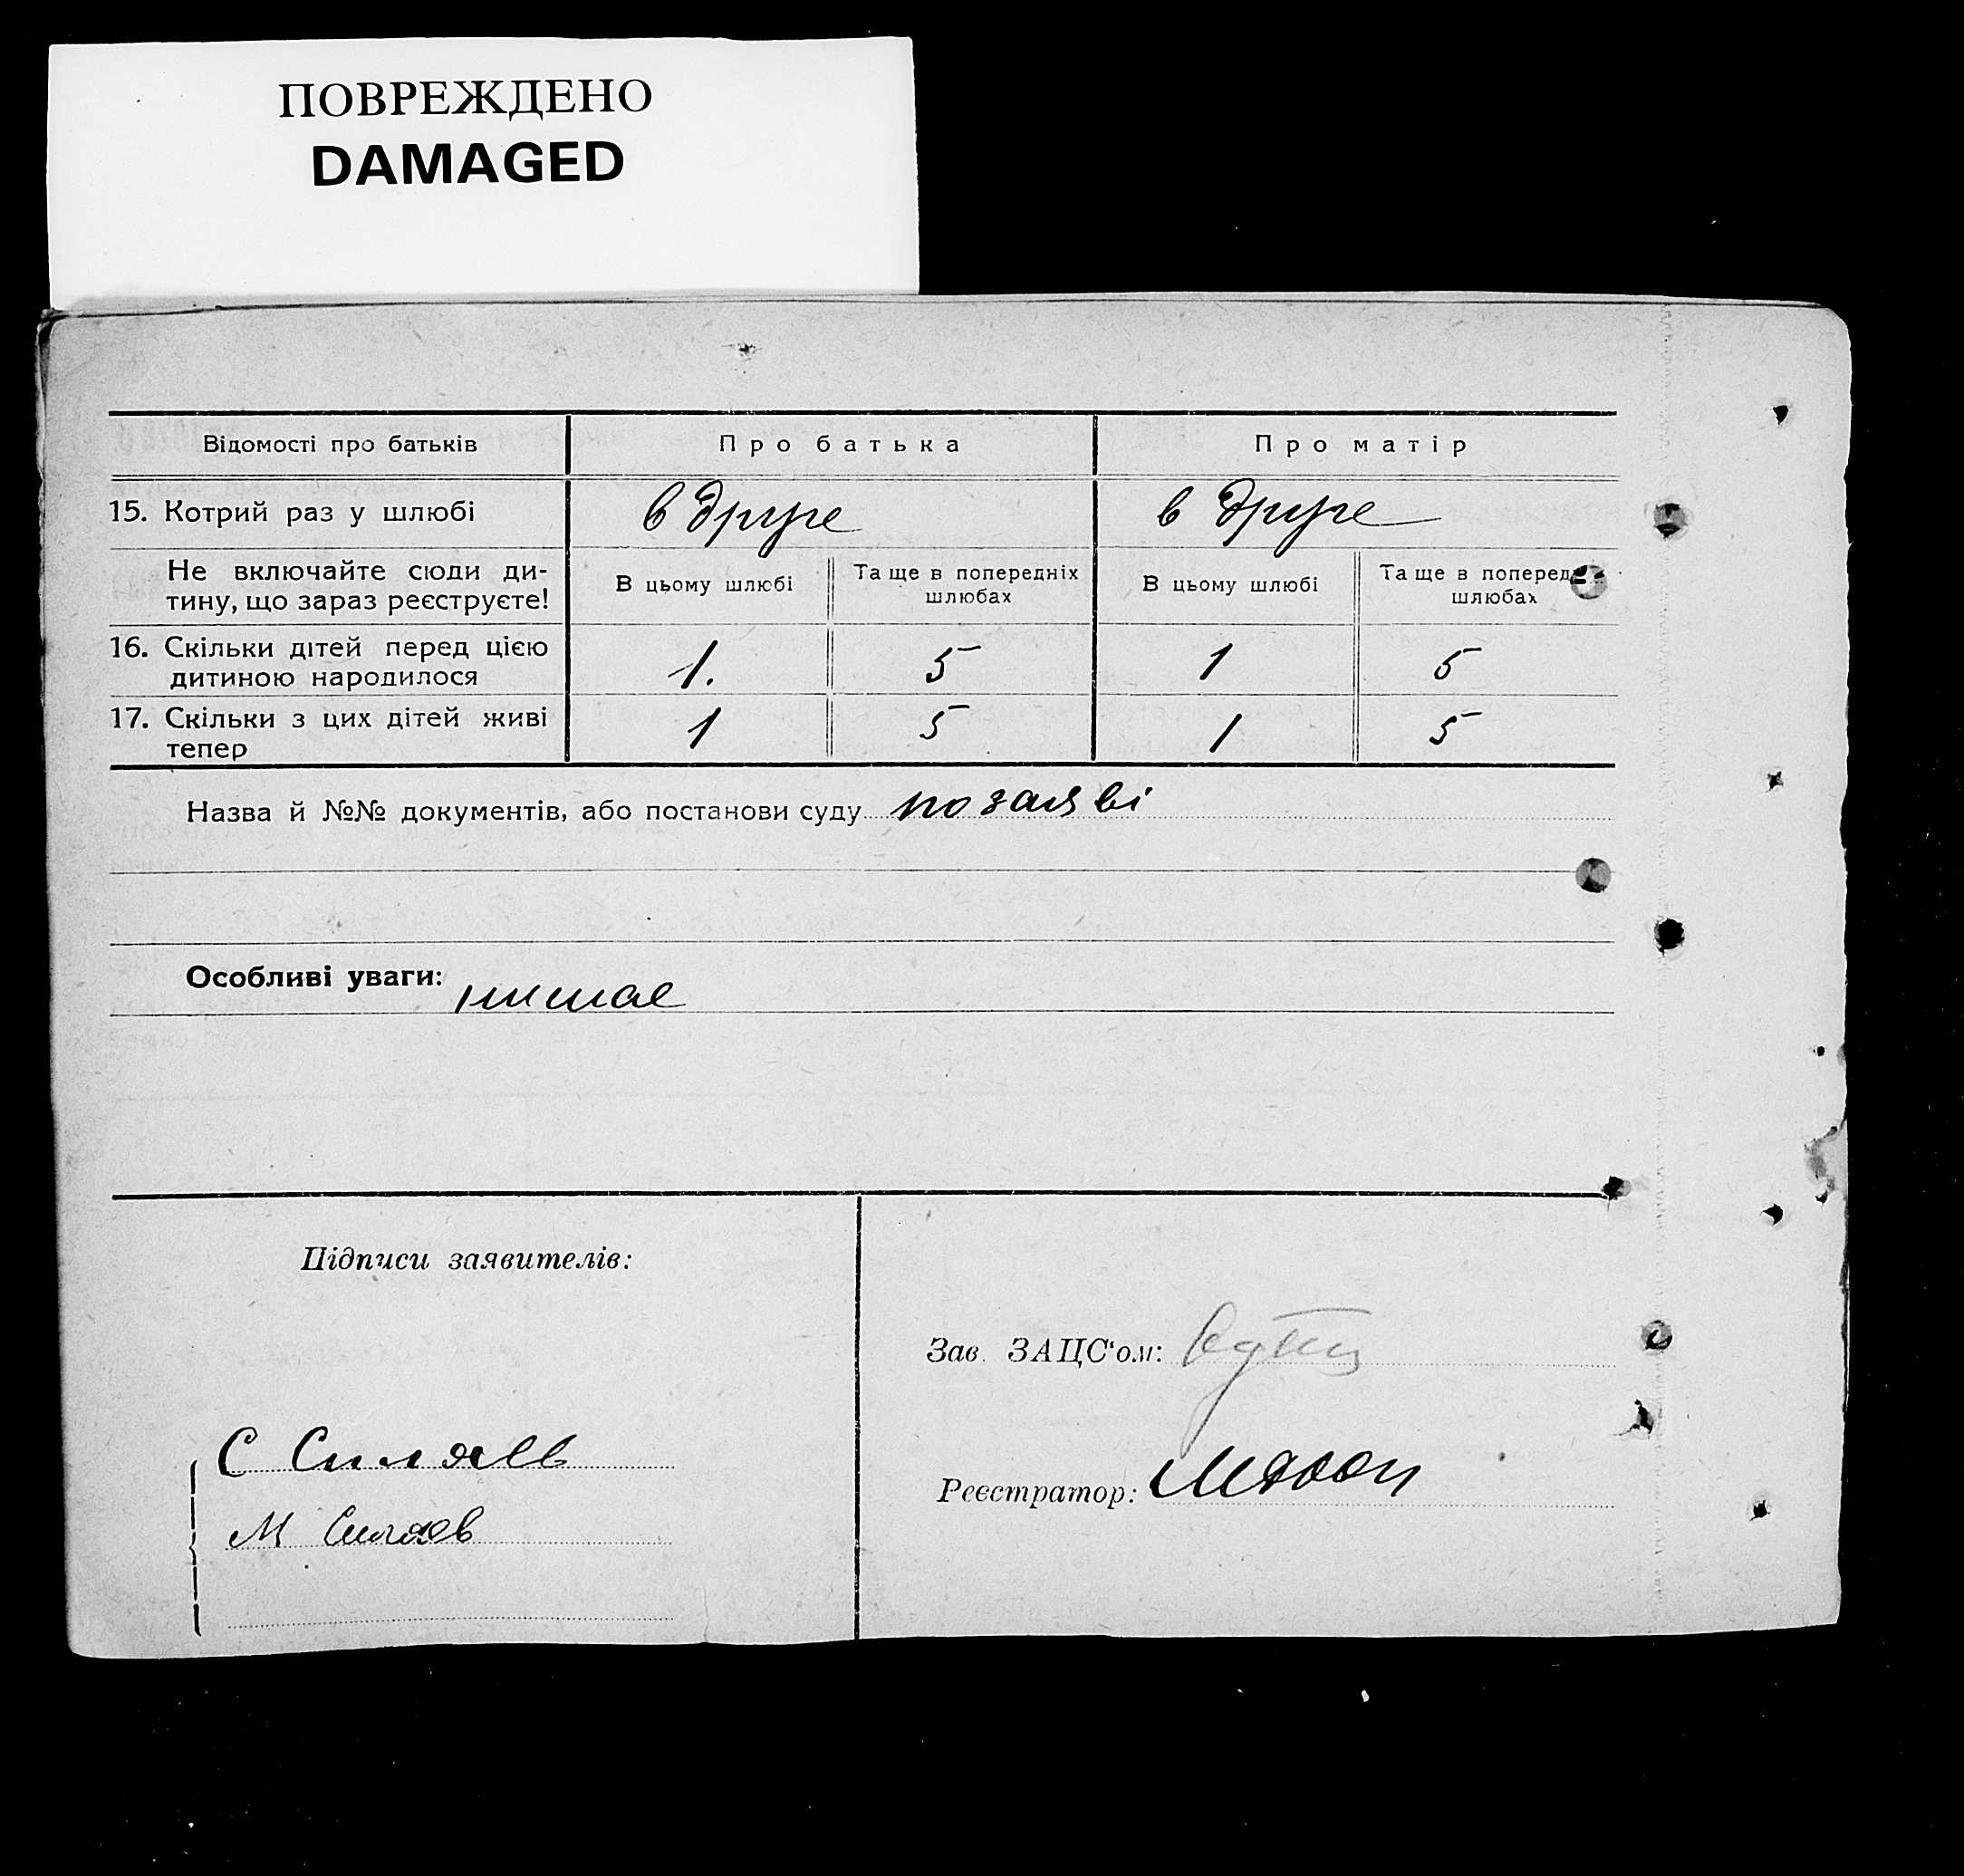 ПОВРЕЖДЕНО
DAMAGED
Відомості про батьків
Про батька
Про матір
15. Котрий раз у шлюбі
в друге
в друге
Не включайте сюди ди-
тину, що зараз реєструєте!
В цьому шлюбі
Та ще в попередніх
шлюбах
В цьому шлюбі
Та ще в поперед
шлюбах
16. Скільки дітей перед цією
дитиною народилося
1.
5
1
5
17. Скільки з цих дітей живі
тепер
1
5
1
5
Назва й №№ документів, або постанови суду по заяві
Особливі уваги: немае
Підписи заявителів:
Зав. ЗАЦС'ом:
С Силаев
Реєстратор:
М Силаев